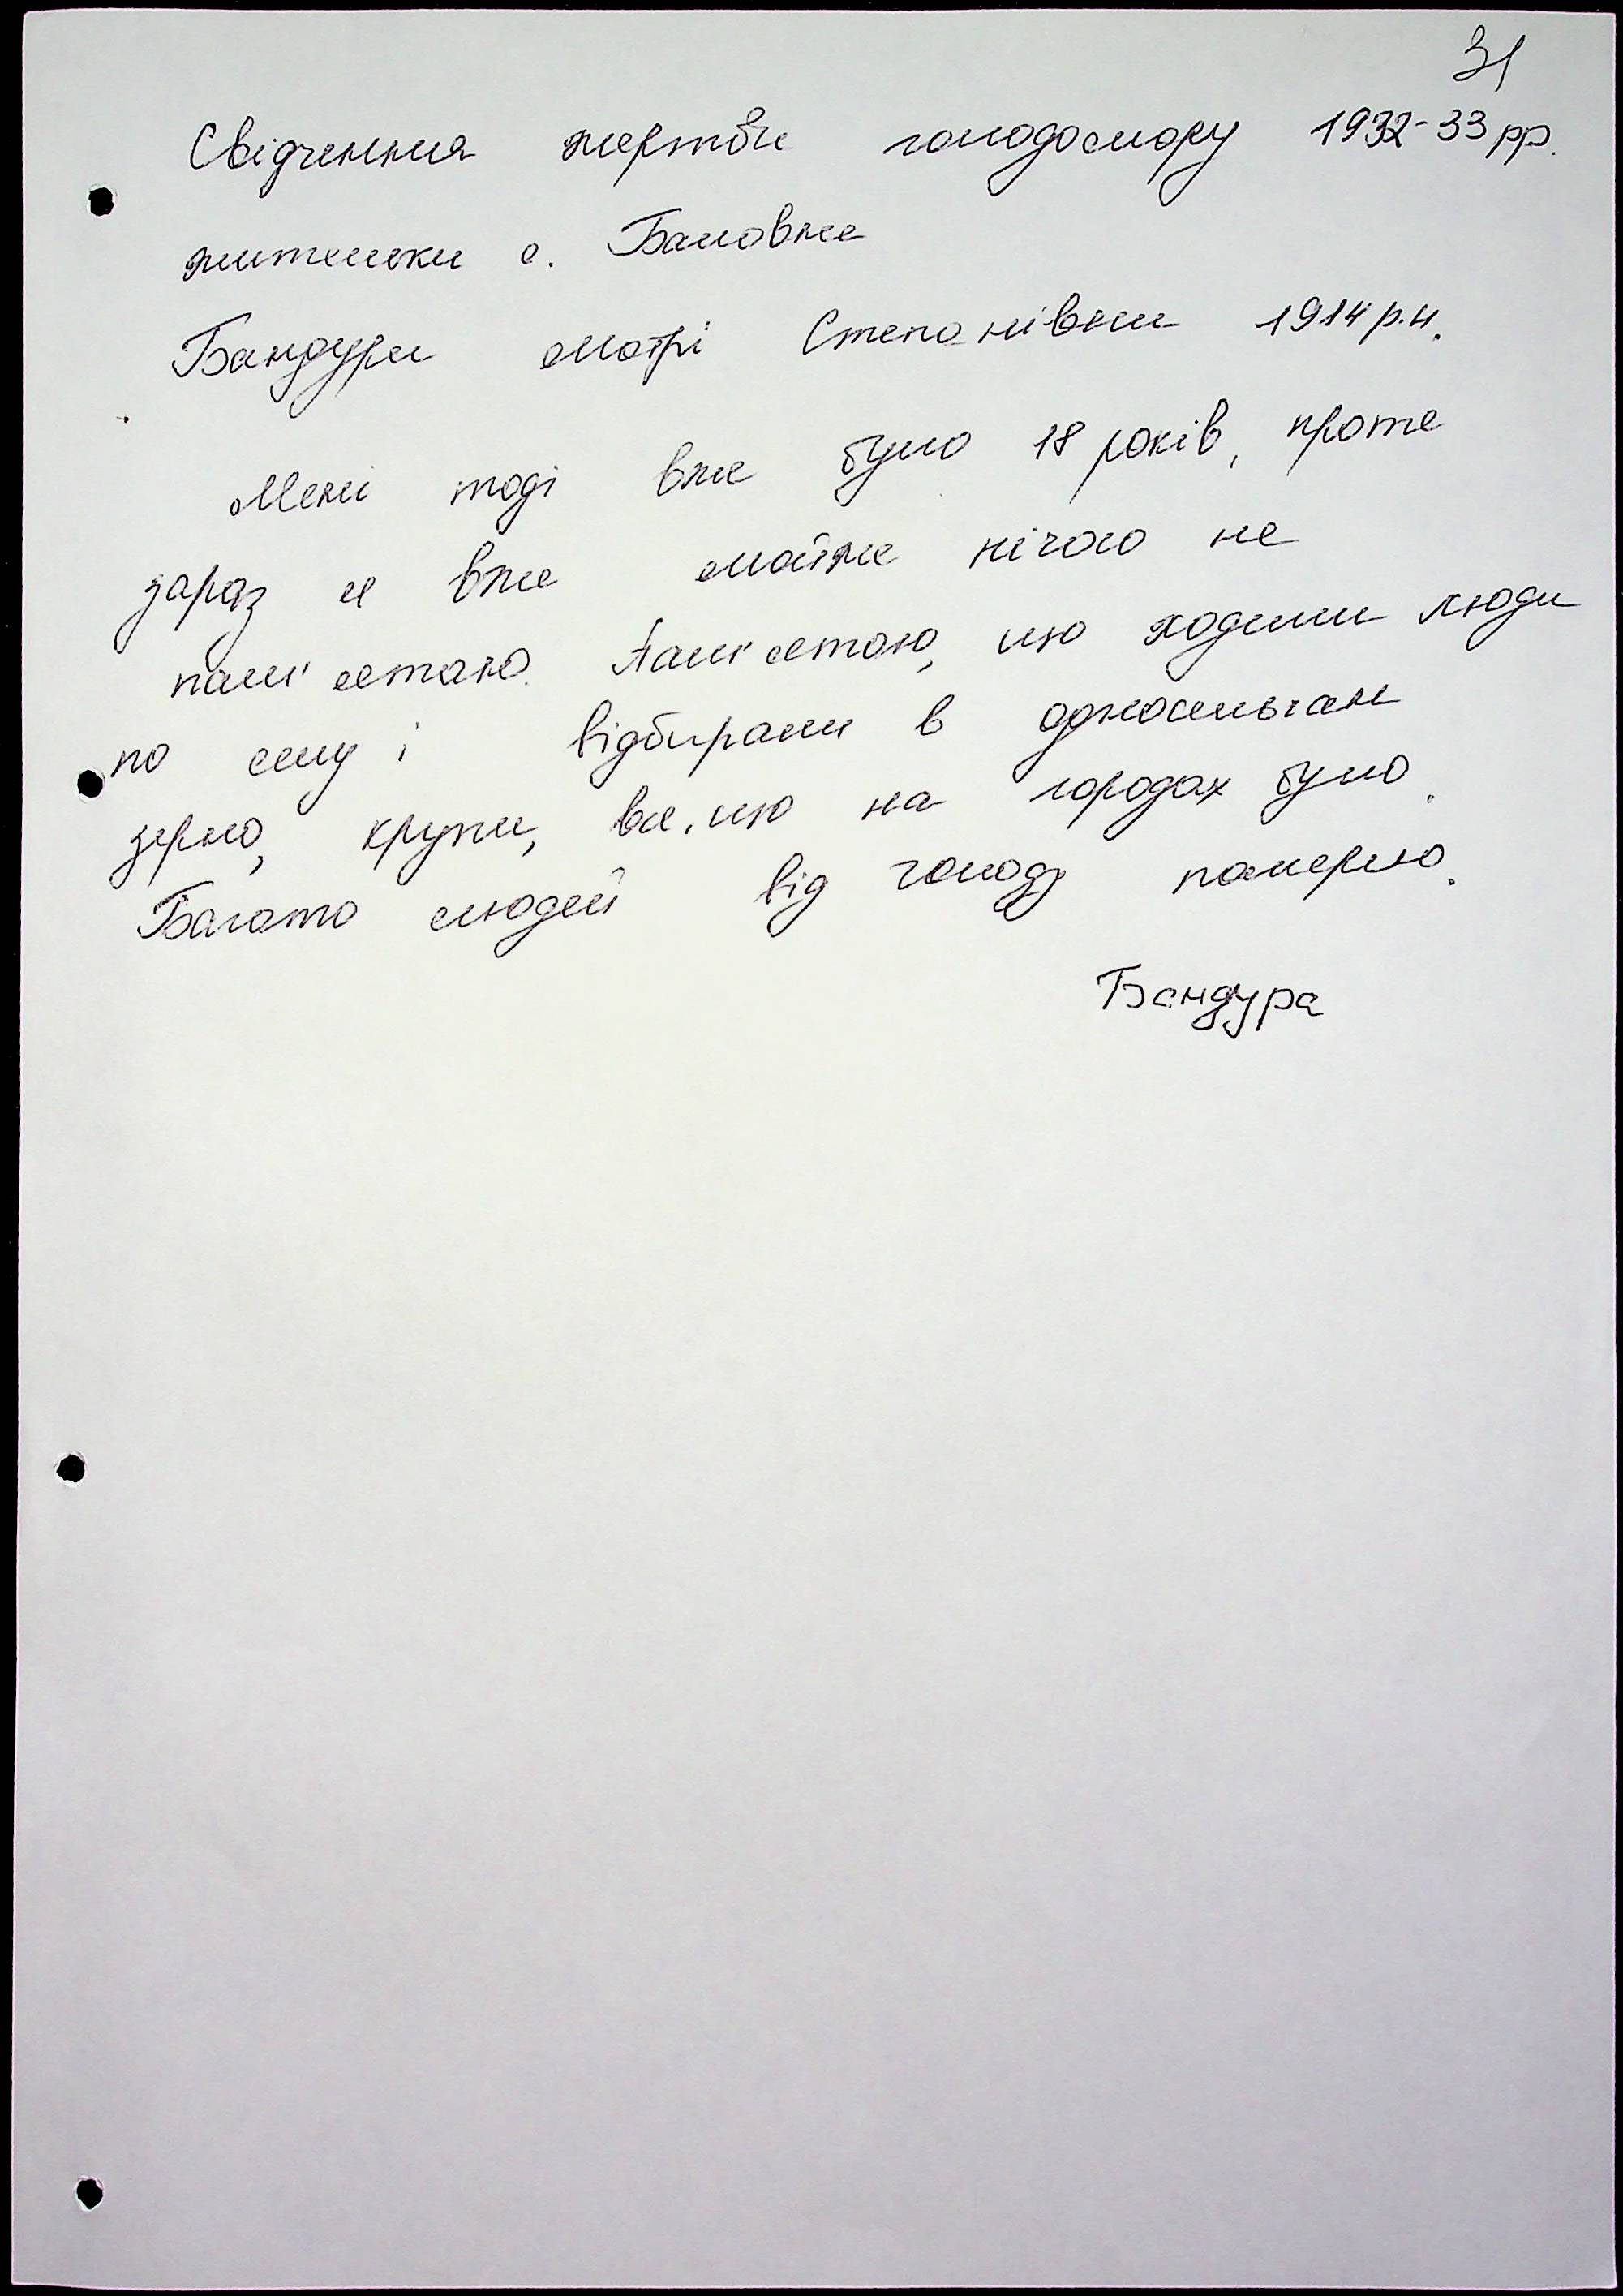 31
Свідчення жертви голодомору 1932-33 рр.
жительки с. Баловне
Бандури Мотрі Степанівни 1914 р.н.
Мені тоді вже було 18 років, проте
зараз я вже майже нічого не
пам'ятаю. Пам'ятаю, що ходили люди
по селу і відбирали в односельчан
зерно, крупи, все, що на городах було.
Багато людей від голоду померло.
Бандура